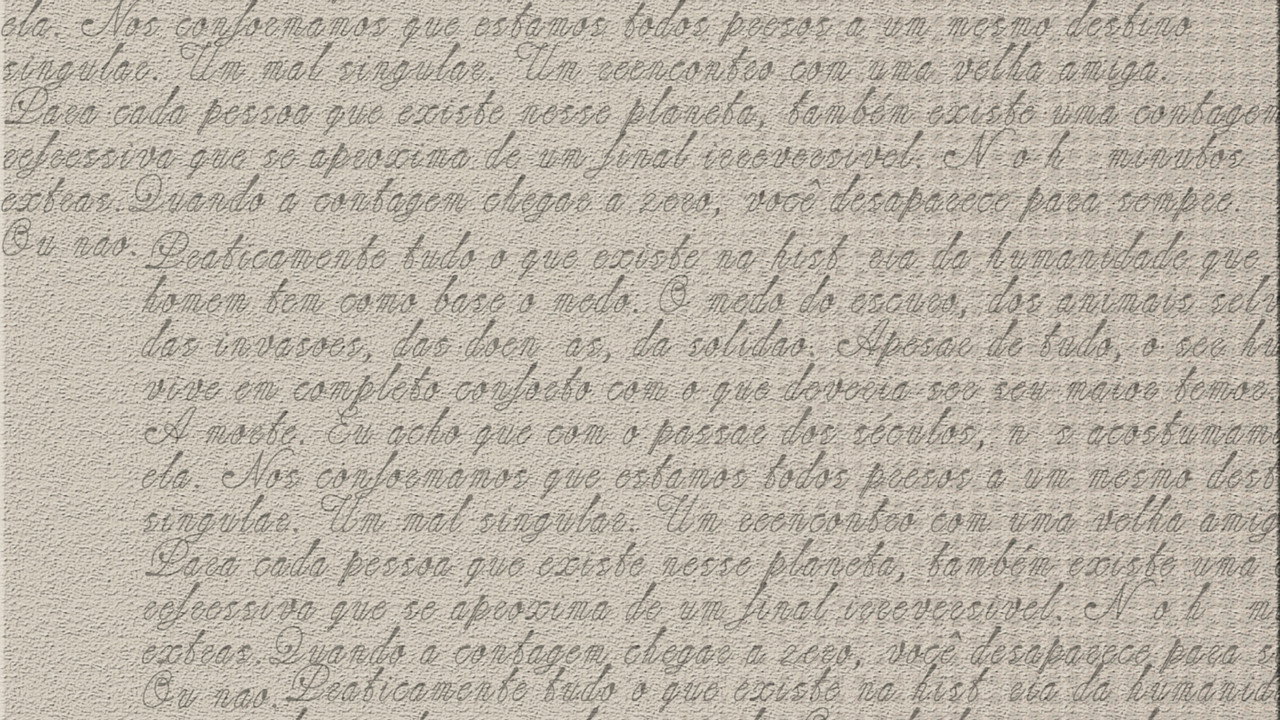 ela. Nos conformamos que estamos todos presos a um mesmo destino
singular. Um mal singular. Um reencontro com uma velha amiga.
Para cada pessoa que existe nesse planeta, também existe uma contagem
refressiva que se aproxima de um final irreversivel. N o h minutos
extras. Quando a contagem chegar a zero, você desaparece para sempre.
Ou nao.
Praticamente tudo o que existe na hist ria da humanidade que
homem tem como base o medo. O medo do escuro, dos animais selv
das invasoes, das doen as, da solidao. Apesar de tudo, o ser hu
vive em completo conforto com o que deveria ser seu maior temor.
A morte. Eu acho que com o passar dos séculos, n s acostumam
ela. Nos conformamos que estamos todos presos a um mesmo dest
singular. Um mal singular. Um reencontro com uma velha amig
Para cada pessoa que existe nesse planeta, também existe uma
refressiva que se aproxima de um final irreversivel. N o h m
extras. Quando a contagem chegar a zero, você desaparece para s
Ou nao.
Praticamente tudo o que existe na hist ria da humanid